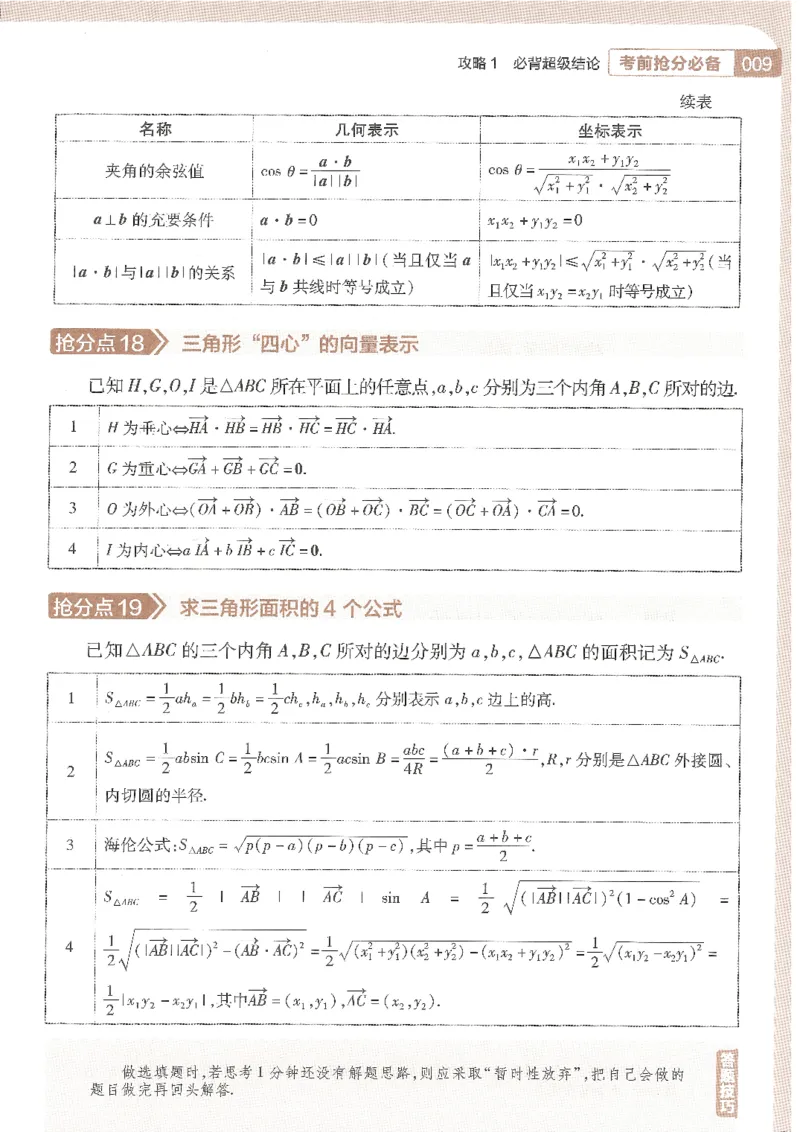 攻略1 必背超级结论 考前抢分必备 009
续表
名称 几何表示 坐标表示
夹角的余弦值 cos θ = a·b / |a||b| cos θ = (x₁x₂+y₁y₂) / (√(x₁²+y₁²)·√(x₂²+y₂²))
a⊥b 的充要条件 a·b=0 x₁x₂+y₁y₂=0
|a·b|与|a||b|的关系 |a·b|≤|a||b|(当且仅当a |x₁x₂+y₁y₂|≤√(x₁²+y₁²)·√(x₂²+y₂²)(当
与b共线时等号成立) 且仅当x₁y₂=x₂y₁时等号成立)
抢分点18 三角形“四心”的向量表示
已知H,G,O,I是△ABC所在平面上的任意点,a,b,c分别为三个内角A,B,C所对的边.
1 H为垂心⇔HA→·HB→=HB→·HC→=HC→·HA→.
2 G为重心⇔GA→+GB→+GC→=0.
3 O为外心⇔(OA→+OB→)·AB→=(OB→+OC→)·BC→=(OC→+OA→)·CA→=0.
4 I为内心⇔aIA→+bIB→+cIC→=0.
抢分点19 求三角形面积的4个公式
已知△ABC的三个内角A,B,C所对的边分别为a,b,c,△ABC的面积记为S△ABC.
1 S△ABC=1/2 ahₐ=1/2 bh_b=1/2 ch_c,hₐ,h_b,h_c分别表示a,b,c边上的高.
2 S△ABC=1/2 absin C=1/2 bcsin A=1/2 acsin B=abc/4R=(a+b+c)·r/2,R,r分别是△ABC外接圆、
内切圆的半径.
3 海伦公式:S△ABC=√(p(p-a)(p-b)(p-c)),其中p=(a+b+c)/2.
4 S△ABC = 1/2 |AB→||AC→| sin A = 1/2 √((|AB→||AC→|)²(1-cos²A)) =
1/2 √((|AB→||AC→|)²-(AB→·AC→)²)=1/2 √((x₁²+y₁²)(x₂²+y₂²)-(x₁x₂+y₁y₂)²)=1/2 √((x₁y₂-x₂y₁)²)=
1/2 |x₁y₂-x₂y₁|,其中AB→=(x₁,y₁),AC→=(x₂,y₂).
做选填题时,若思考1分钟还没有解题思路,则应采取“暂时性放弃”,把自己会做的
题目做完再回头解答.
答题技巧